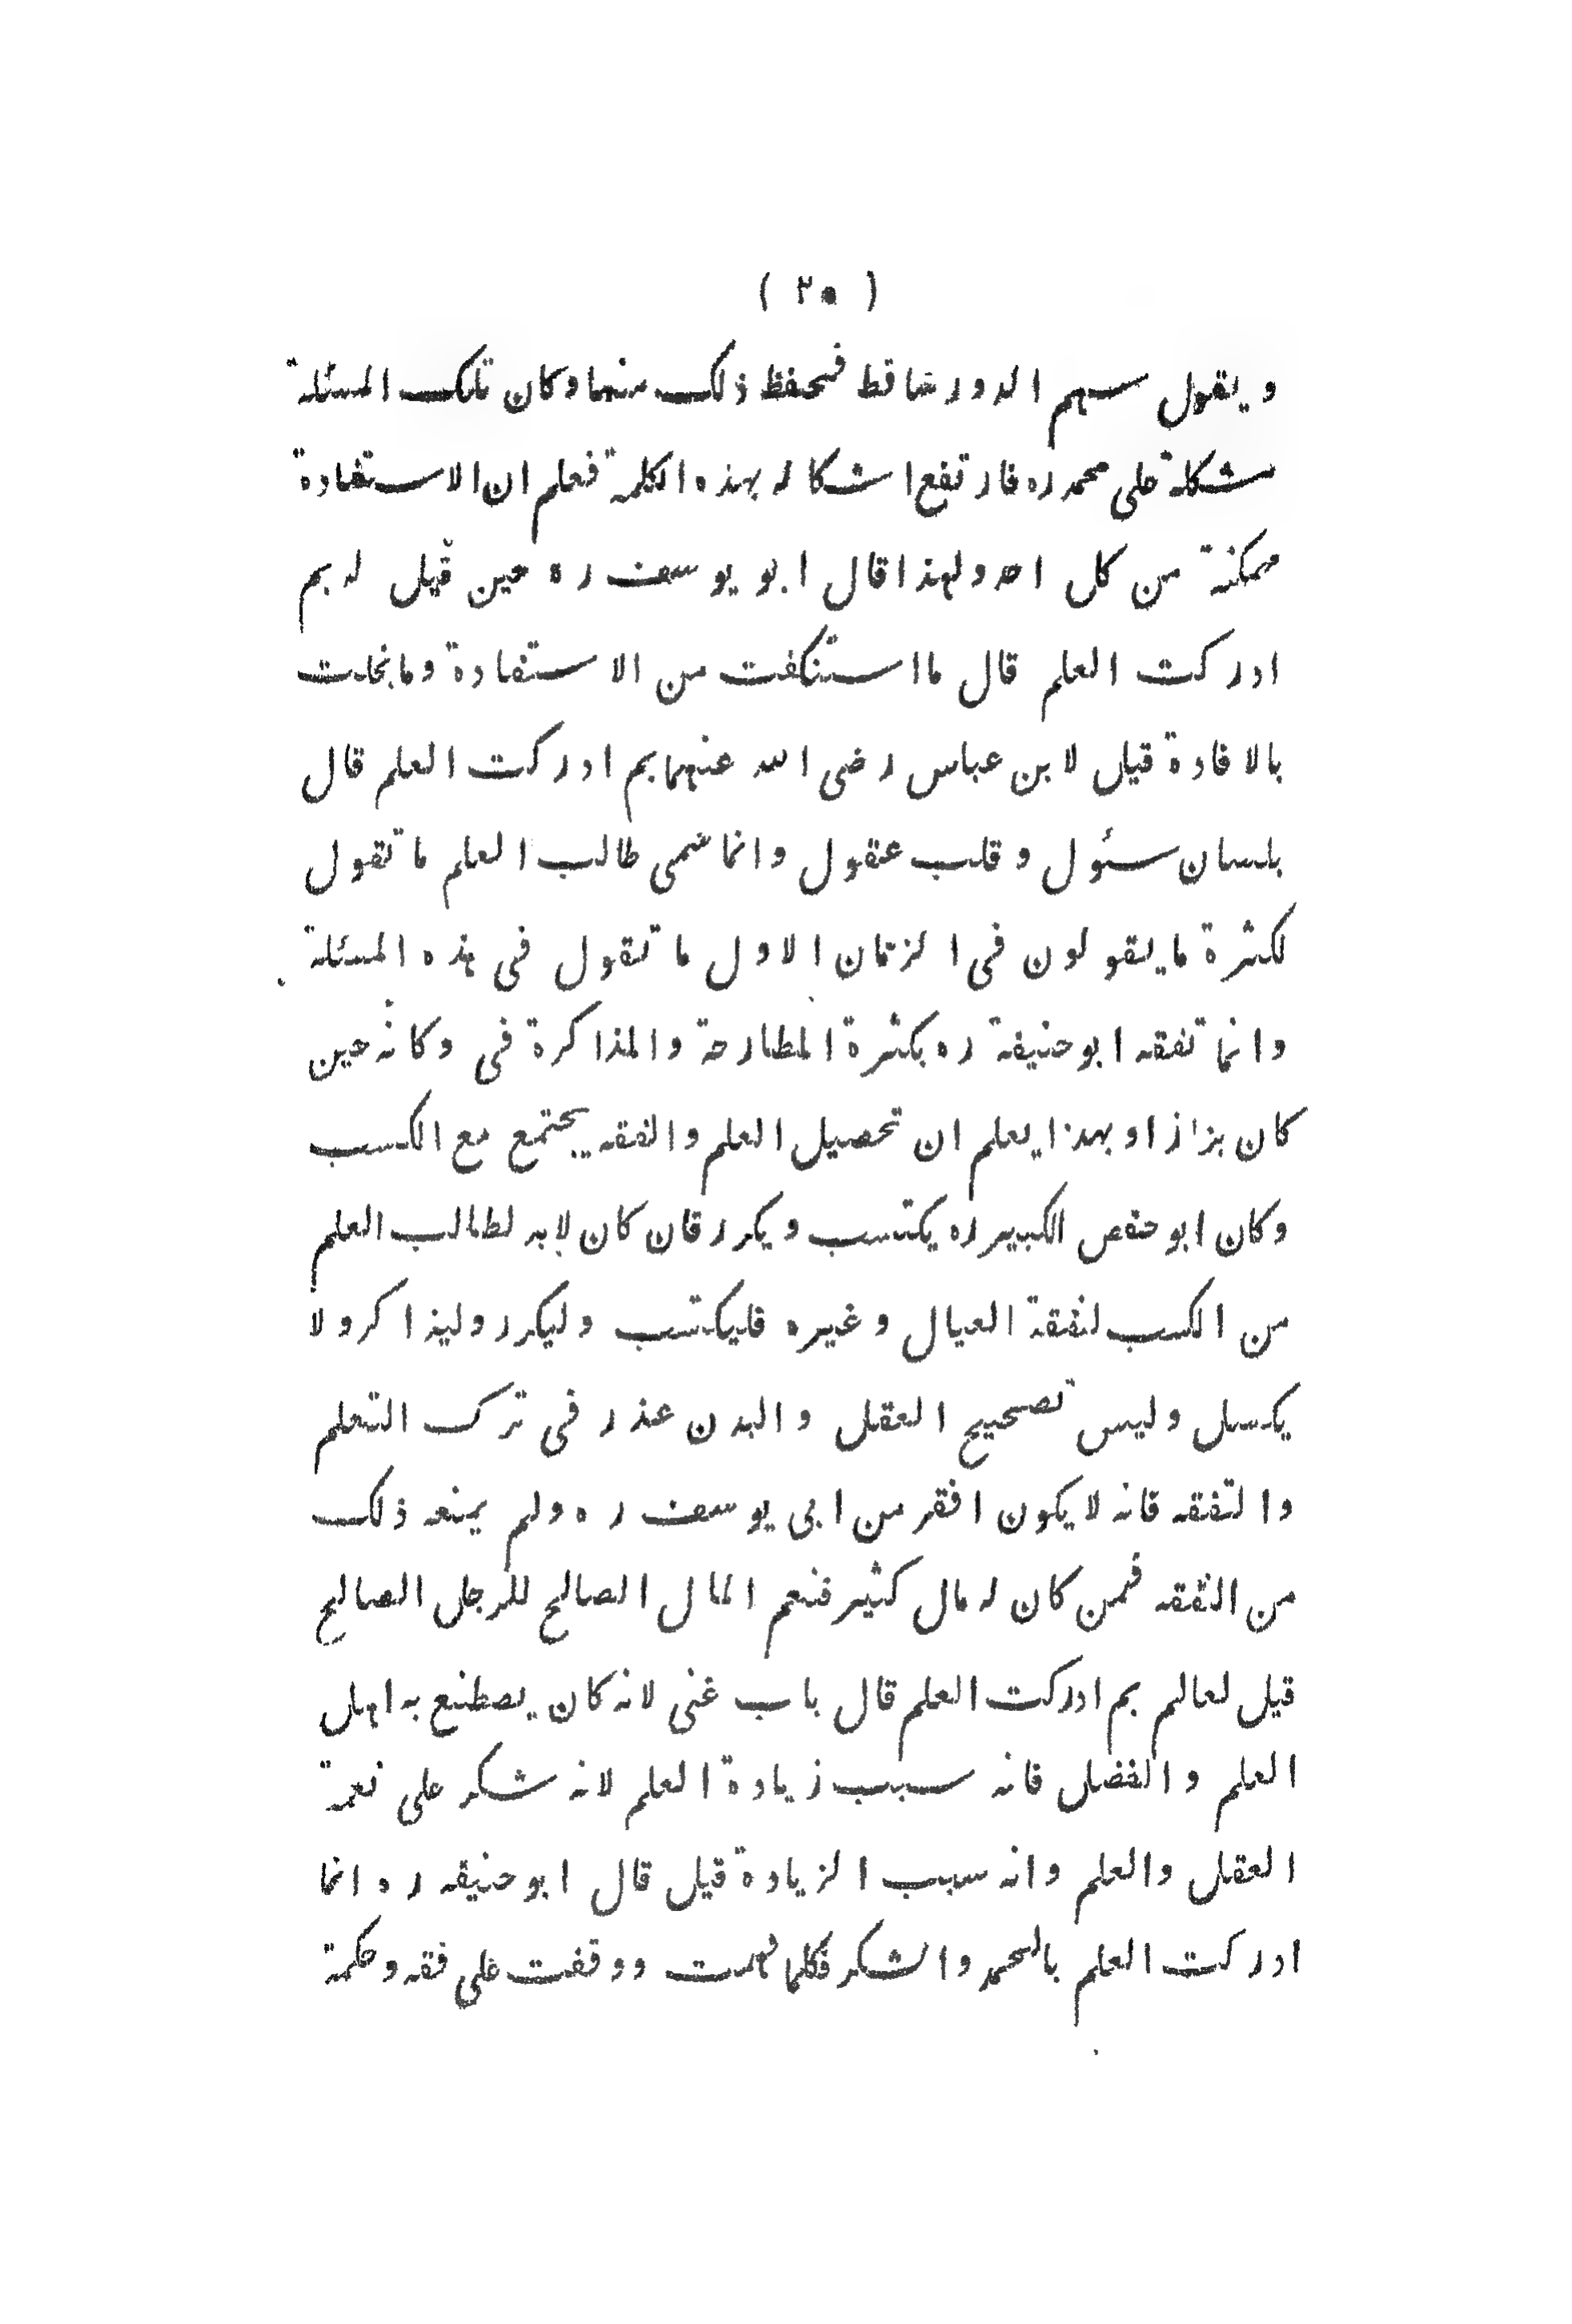 ( ٢٥ )
ويقول سهم الدور ساقط فحفظ ذلك منهما وكان تلك المسئلة
مشكلة على محمد ره فارتفع اشكاله بهذه الكلمة فعلم ان الاستفادة
ممكنة من كل احد ولهذا قال ابو يوسف ره حين قيل له بم
ادركت العلم قال ما استنكفت من الاستفادة وما بخلت
بالافادة قيل لابن عباس رضى الله عنهما بم ادركت العلم قال
بلسان سئول وقلب عقول وانما سمى طالب العلم ما تقول
لكثرة ما يقولون فى الزمان الاول ما تقول فى هذه المسئلة
وانما تفقه ابو حنيفة ره بكثرة المطارحة والمذاكرة فى وكانه حين
كان بزازا وبهذا يعلم ان تحصيل العلم والفقه يجتمع مع الكسب
وكان ابو حفص الكبير ره يكتسب ويكرر فان كان لابد لطالب العلم
من الكسب لنفقة العيال وغيره فليكتسب وليكرر وليذاكر ولا
يكسل وليس تصحيح العقل والبدن عذر فى ترك التعلم
والتفقه فانه لا يكون افقر من ابى يوسف ره ولم يمنعه ذلك
من التفقه فمن كان له مال كثير فنعم المال الصالح للرجل الصالح
قيل لعالم بم ادركت العلم قال باب غنى لانه كان يصطنع به اهل
العلم والفضل فانه سبب زيادة العلم لانه شكر على نعمة
العقل والعلم وانه سبب الزيادة قيل قال ابو حنيفه ره انما
ادركت العلم بالحمد والشكر فكلما فهمت ووقفت على فقه وحكمة